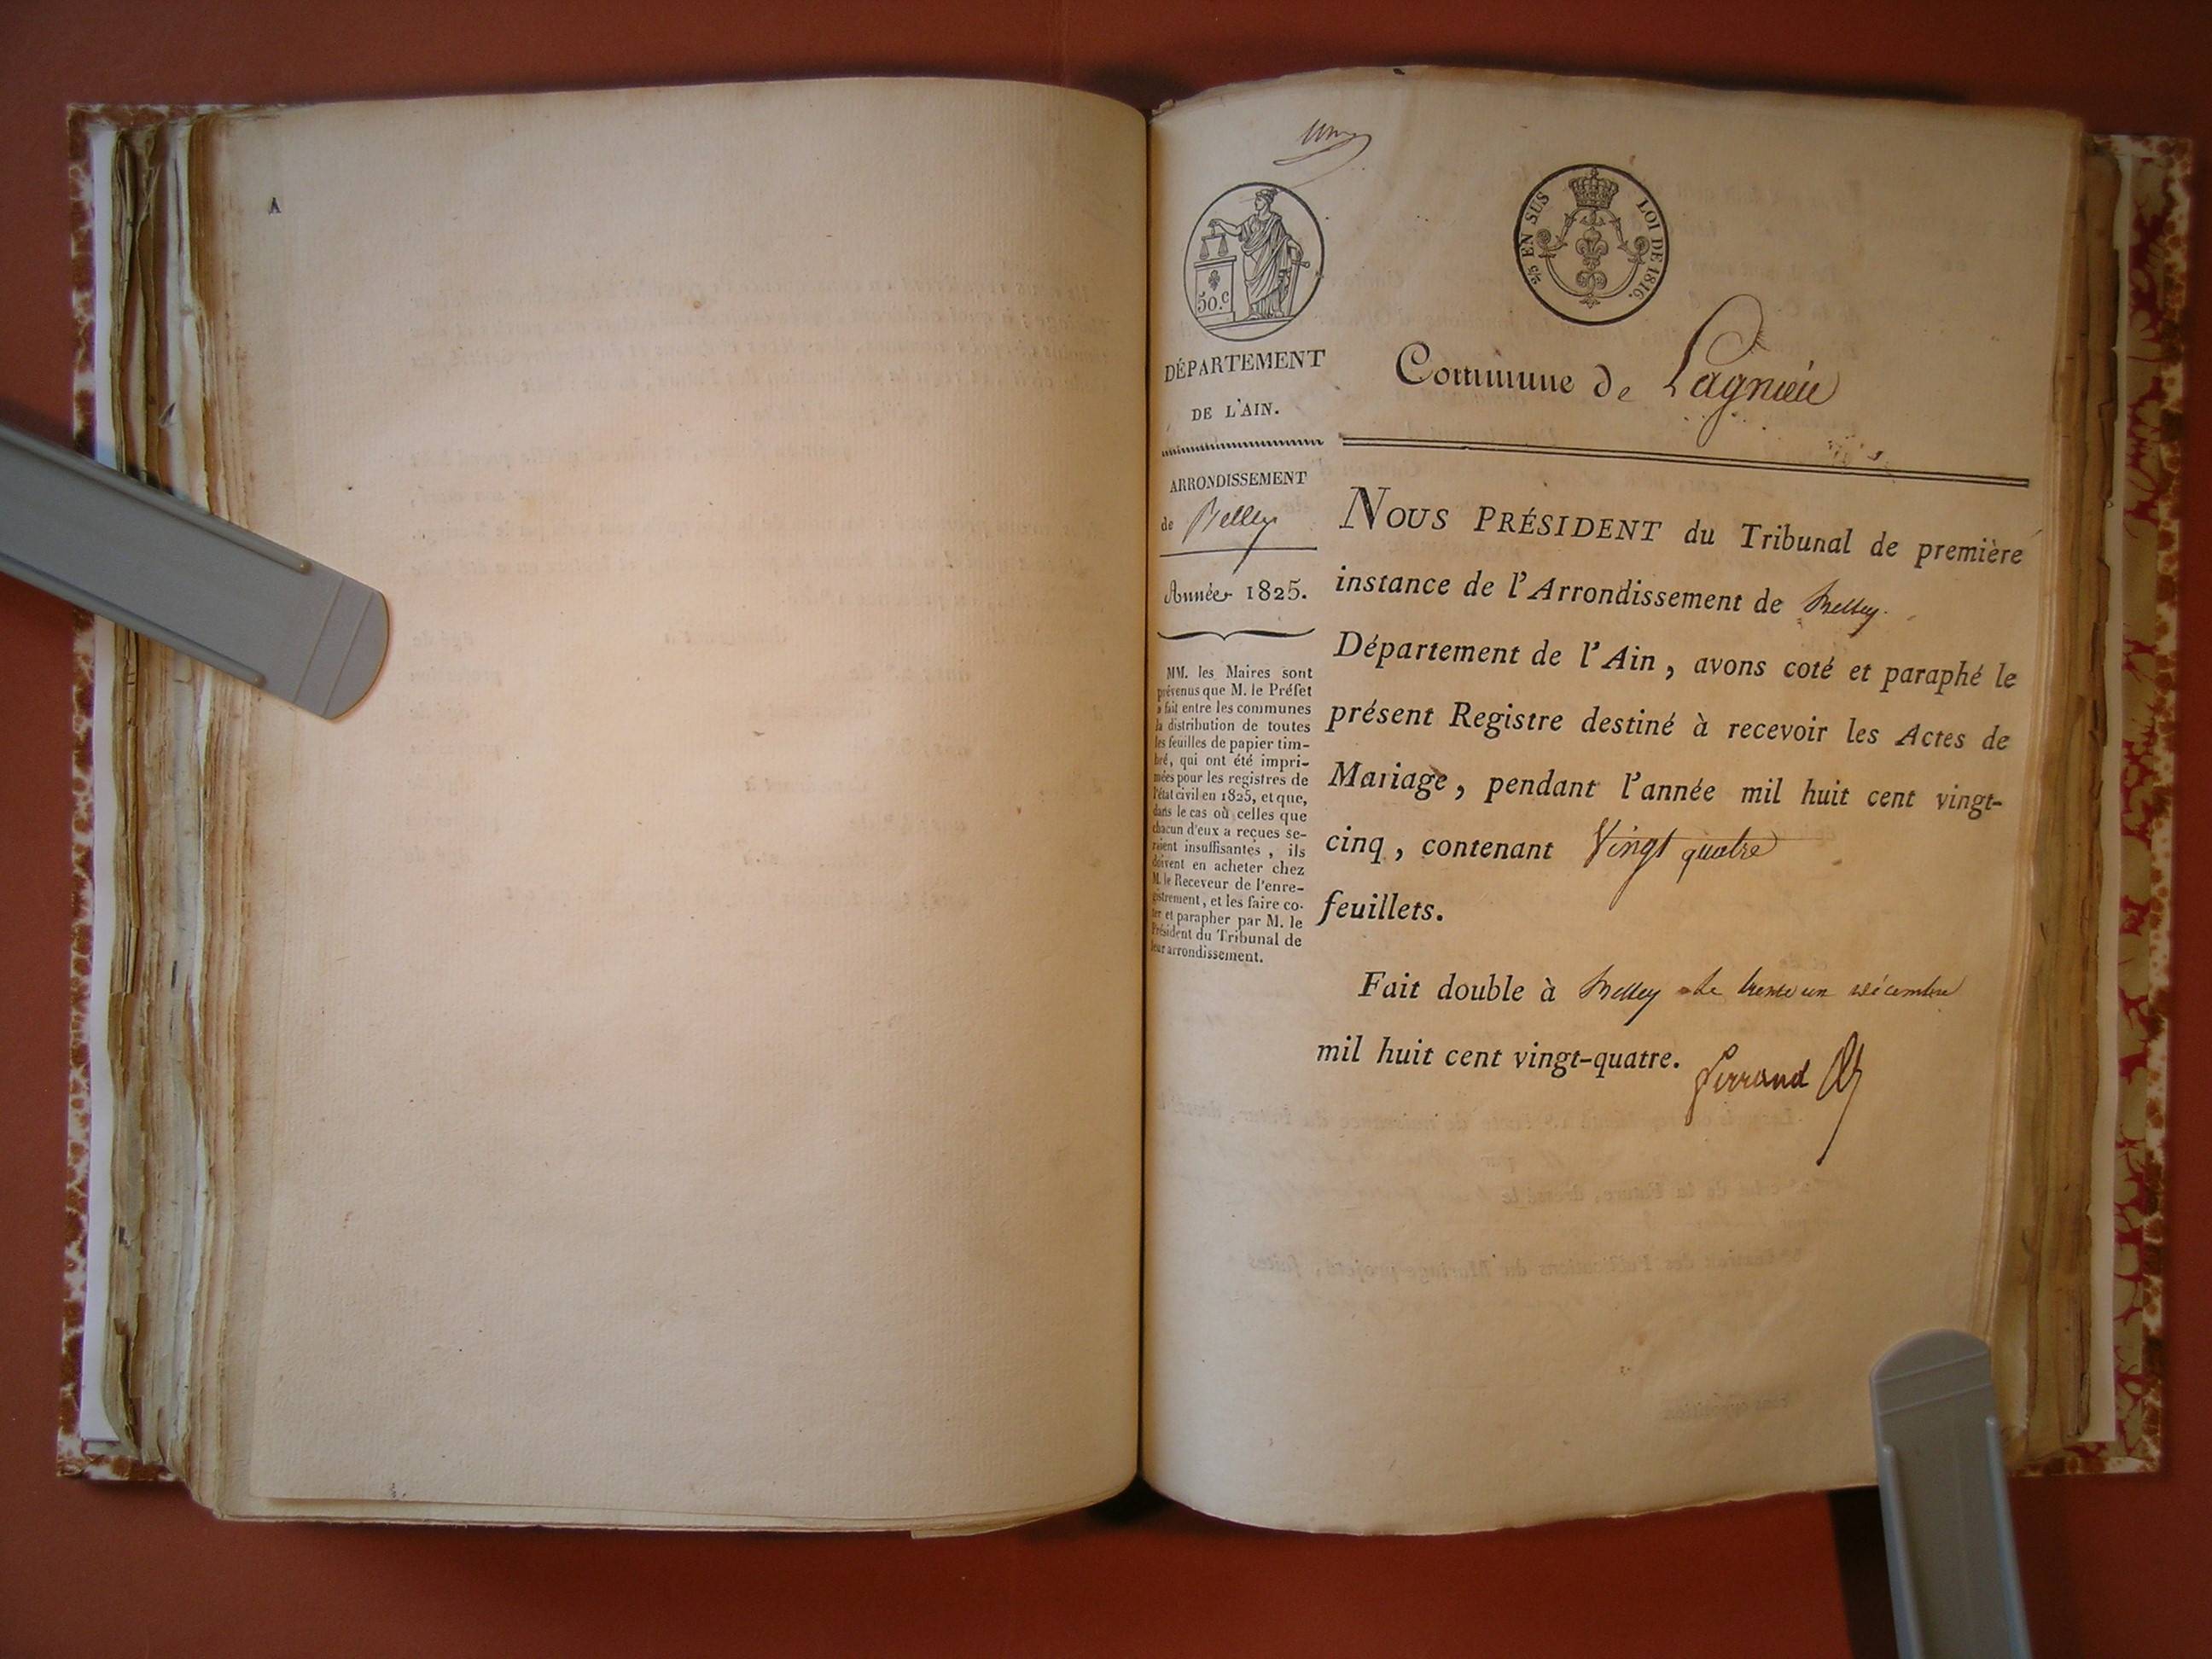 A
50.c
2/5 EN SUS
LOI DE 1816.
DÉPARTEMENT
DE L'AIN.
Commune de Lagnieu
ARRONDISSEMENT
de Belley
Année 1825.
MM. les Maires sont
prévenus que M. le Préfet
a fait entre les communes
la distribution de toutes
les feuilles de papier tim-
bré, qui ont été impri-
mées pour les registres de
l'état civil en 1825, et que,
dans le cas où celles que
chacun d'eux a reçues se-
raient insuffisantes, ils
doivent en acheter chez
M. le Receveur de l'enre-
gistrement, et les faire co-
ter et parapher par M. le
Président du Tribunal de
leur arrondissement.
NOUS PRÉSIDENT du Tribunal de première
instance de l'Arrondissement de Belley.
Département de l'Ain, avons coté et paraphé le
présent Registre destiné à recevoir les Actes de
Mariage, pendant l'année mil huit cent vingt-
cinq, contenant Vingt quatre
feuillets.
Fait double à Belley le trente un décembre
mil huit cent vingt-quatre.